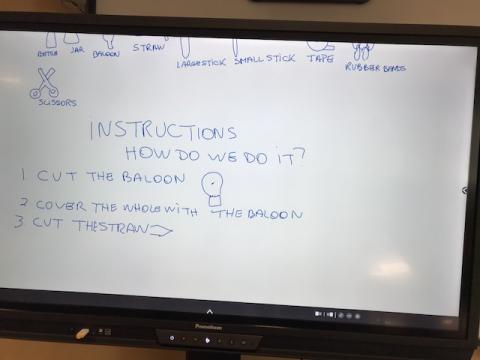 JAR BALOON STRAW LARGE STICK SMALL STICK TAPE RUBBER BANDS
SCISSORS
INSTRUCTIONS
HOW DO WE DO IT?
1 CUT THE BALOON
2 COVER THE WHOLE WITH THE BALOON
3 CUT THE STRAW
Promethean